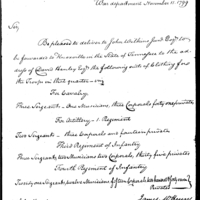 War department November 11. 1799
Sir,
Be pleased to deliver to John Watkins
be forwarded to Knoxville in the State of Tennessee to the ad-
of David Henley Esqr the following articles of Clothing for
the Troops in that quarter
For Cavalry.
Three Sergeants One Musician, three Corporals forty six privates
For Artillery 1 Regiment
Two Sergeants three Corporals and fourteen privates
Third Regiment of Infantry
Three Sergeants two Musicians two Corporals, thirty five privates
Fourth Regiment of Infantry
Twenty one Sergeants twelve Musicians fifteen Corporals two hundred
Privates
James McHenry